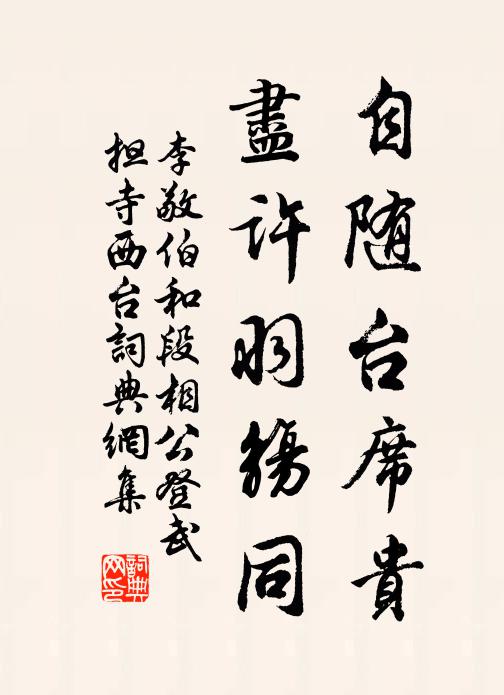 自随台席貴
盡許羽觴同
李敬伯和段相公登武
担寺西台詞典網集
詞典網印